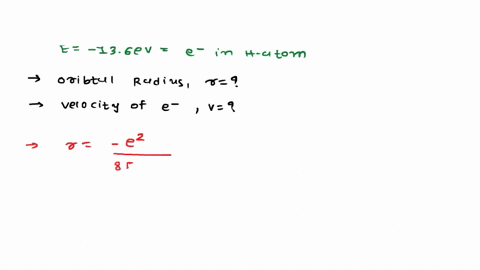 E = -13.6eV = e⁻ in H-atom
→ oribtal Radius, r=?
→ velocity of e⁻ , v=?
→ r = -e² / 85